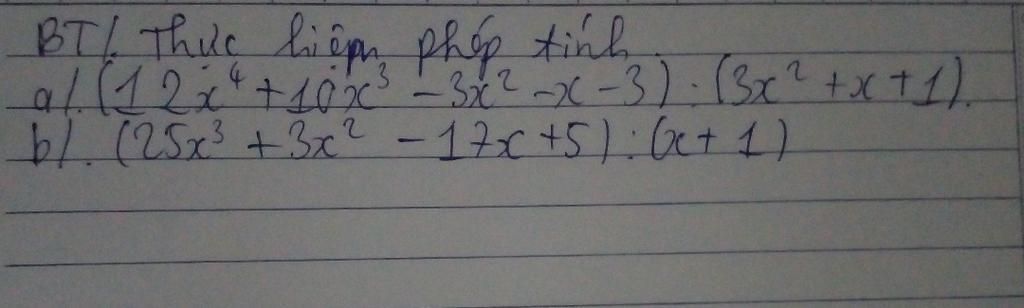 BT/. Thực hiện phép tính
a/. (12x⁴ + 10x³ - 3x² - x - 3) : (3x² + x + 1).
b/. (25x³ + 3x² - 17x + 5) : (x + 1)